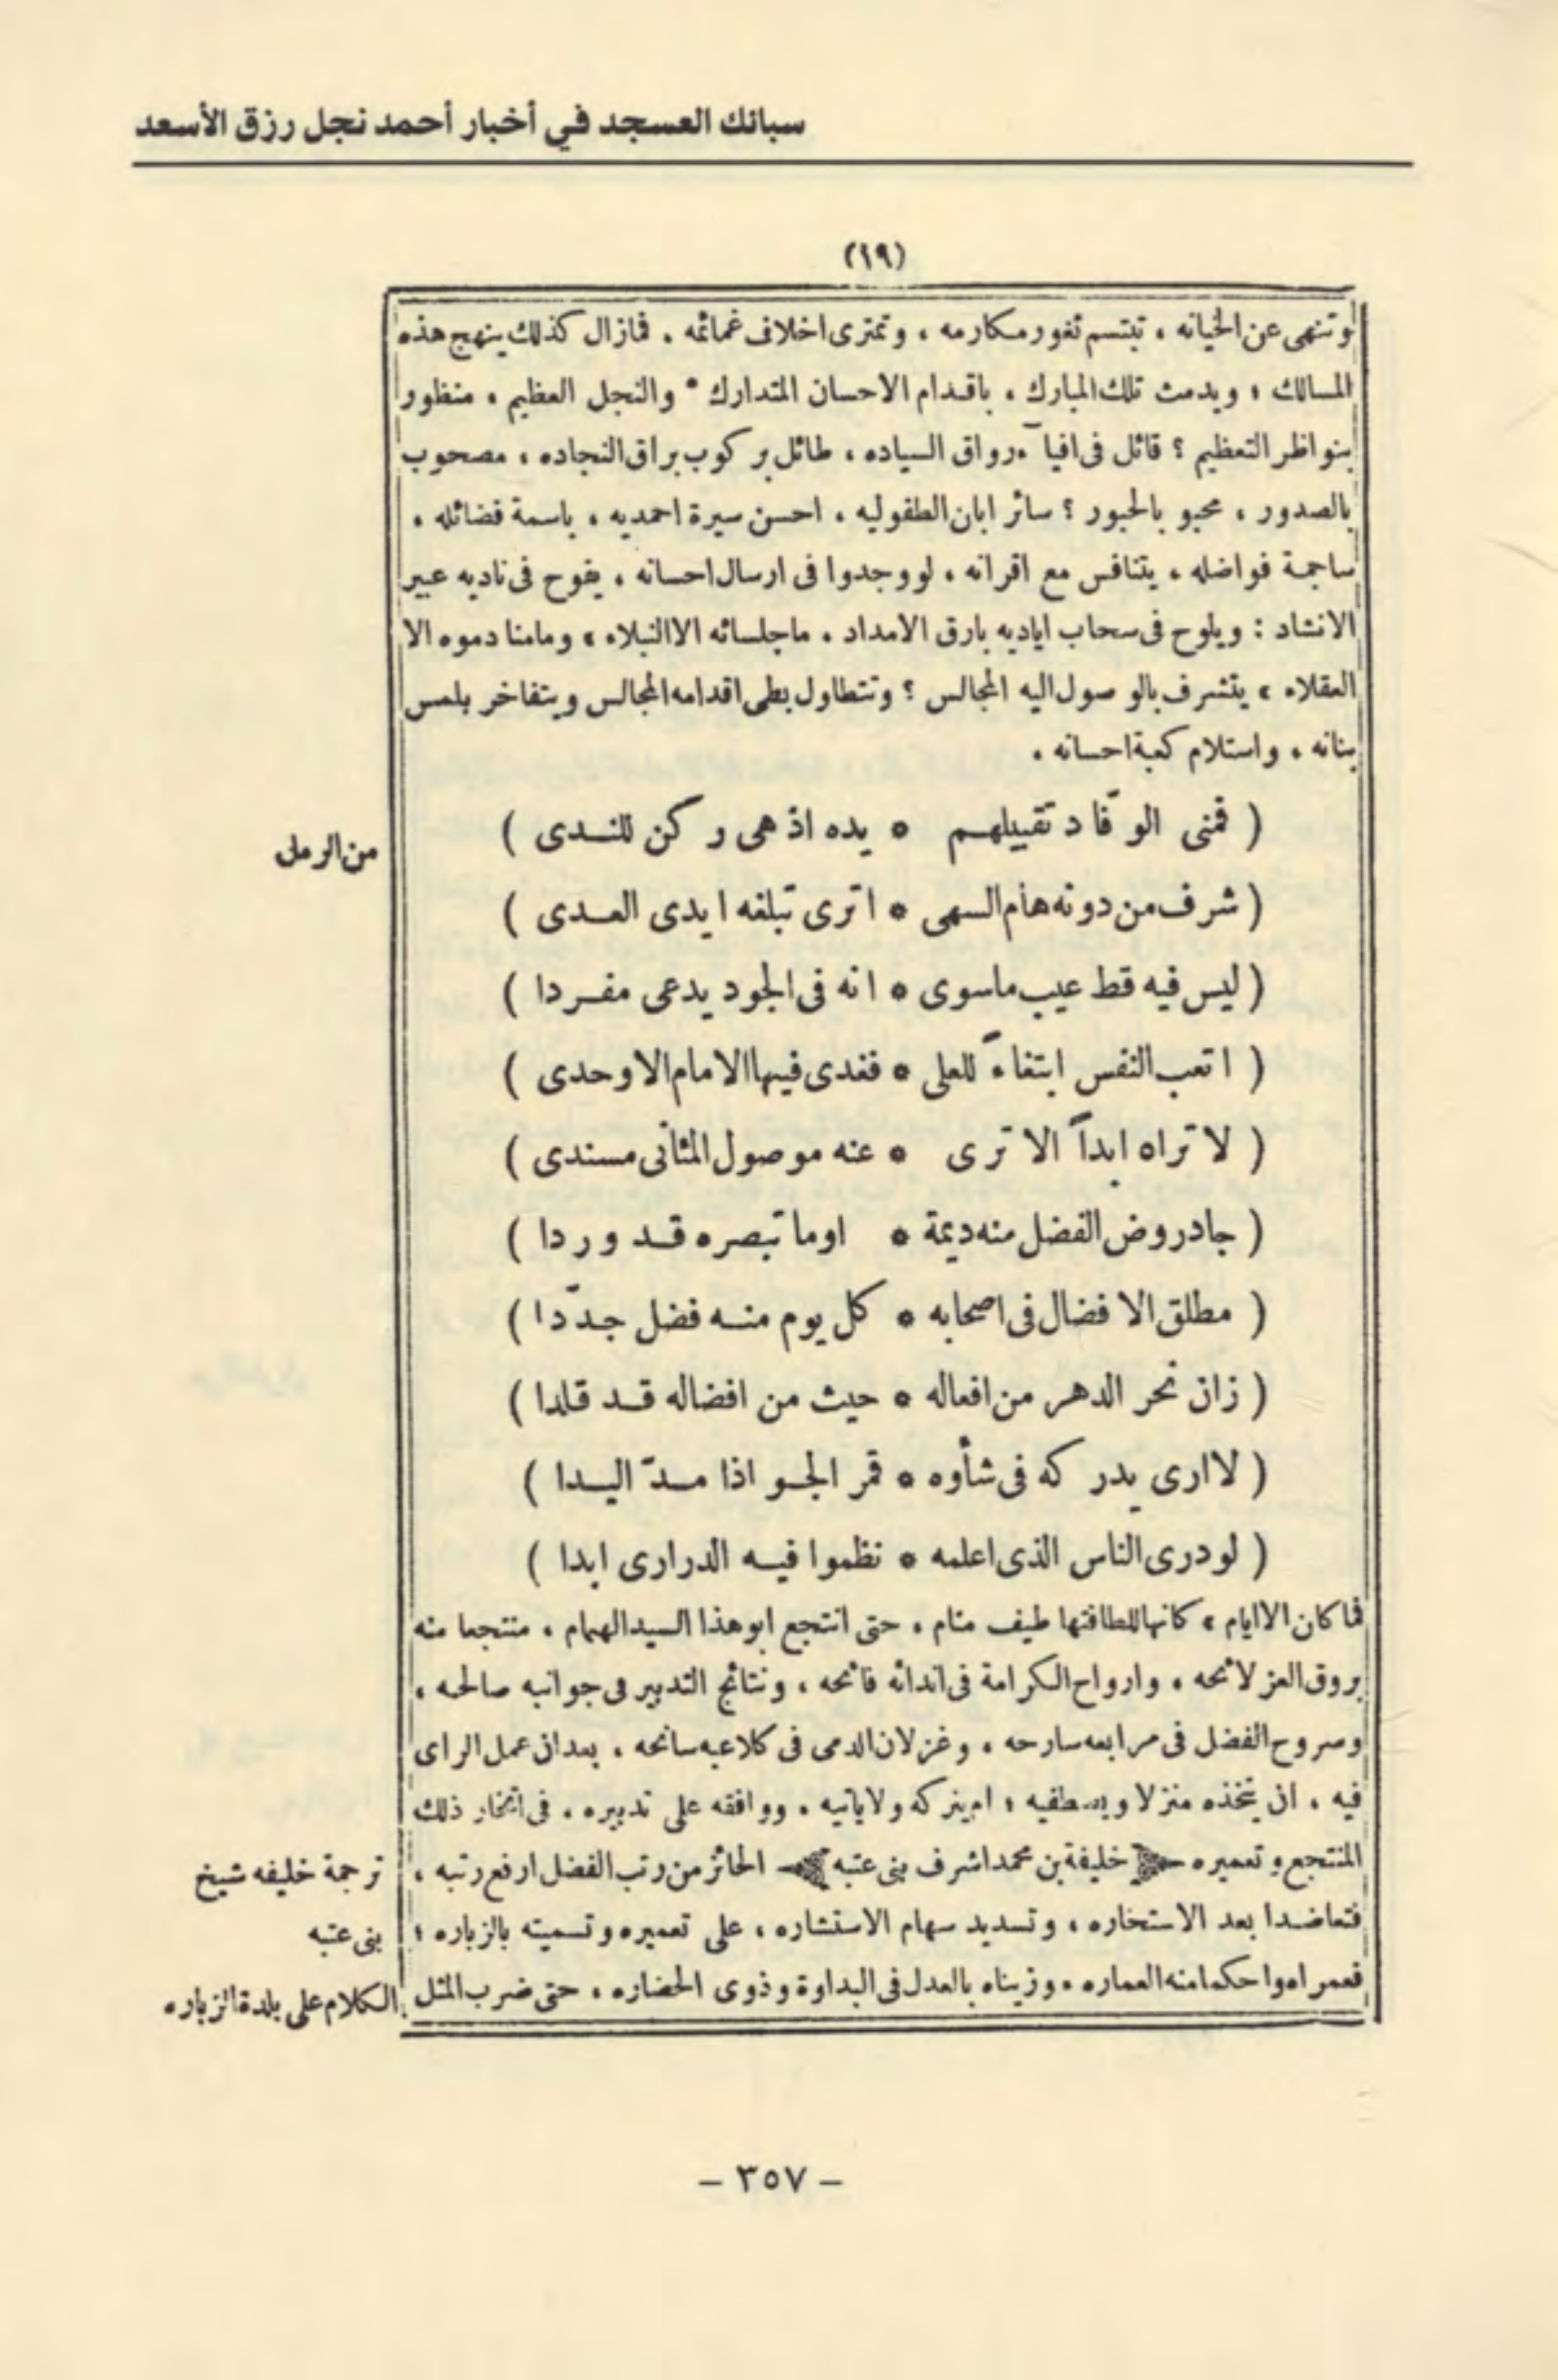 سبائك العسجد في أخبار أحمد نجل رزق الأسعد
(١٩)
وتنهى عن الخيانه ، تبتسم ثغور مكارمه ، وتمترى اخلاف غمائمه . فمازال كذلك ينهج هذه
المسالك ؛ ويدمث تلك المبارك . باقدام الاحسان المتدارك * والنجل العظيم ، منظور
بنواظر التعظيم ؟ قائل فى افياآء رواق السياده ، طائل بركوب براق النجاده ، مصحوب
بالصدور ، محبو بالحبور ؟ سائر ابان الطفوليه ، احسن سيرة احمديه ، باسمة فضائله ،
ساجمة فواضله ، يتنافس مع اقرانه ، لو وجدوا فى ارسال احسانه ، يفوح فى ناديه عبير
الانشاد : ويلوح فى سحاب اياديه بارق الامداد . ماجلسائه الا النبلاء ، ومامنادموه الا
العقلاء ، يتشرف بالوصول اليه المجالس ؟ وتتطاول بطى اقدامه المجالس ويتفاخر بلمس
بنانه ، واستلام كعبة احسانه .
( فمنى الوفّاد تقبيلهم * يده اذ هى ركن للندى )
من الرمل
( شرف من دونه هام السهى * اترى تبلغه ايدى العدى )
( ليس فيه قط عيب ماسوى * انه فى الجود يدعى مفردا )
( اتعب النفس ابتغاءً للعلى * فغدى فيها الامام الاوحدى )
( لا تراه ابداً الا ترى * عنه موصول المثانى مسندى )
( جاد روض الفضل منه ديمة * اوما تبصره قد وردا )
( مطلق الافضال فى اصحابه * كل يوم منه فضل جدّدا )
( زان نحر الدهر من افعاله * حيث من افضاله قد قلدا )
( لا ارى يدركه فى شأوه * قمر الجو اذا مدّ اليدا )
( لو درى الناس الذى اعلمه * نظموا فيه الدرارى ابدا )
فما كان الا ايام ، كانها للطافتها طيف منام ، حتى انتجع ابو هذا السيد الهمام ، منتجعا منه
بروق العز لائحه ، وارواح الكرامة فى اندائه فائحه ، ونتائج التدبير فى جوانبه صالحه ،
وسروح الفضل فى مرابعه سارحه ، وغزلان الدمى فى كلاعبه سانحه ، بعد ان عمل الراى
فيه ، ان يتخذه منزلا ويصطفيه ؛ ام يتركه ولا يأتيه ، ووافقه على تدبيره . فى اتخاذ ذلك
المنتجع وتعميره خليفة بن محمد اشرف بنى عتبه الحائز من رتب الفضل ارفع رتبه ،
ترجمة خليفه شيخ
بنى عتبه
فتعاضدا بعد الاستخاره ، وتسديد سهام الاستشاره ، على تعميره وتسميته بالزباره ؛
فعمراه واحكما منه العماره ، وزيناه بالعدل فى البداوة وذوى الحضاره ، حتى ضرب المثل
الكلام على بلدة الزباره
– ٣٥٧ –